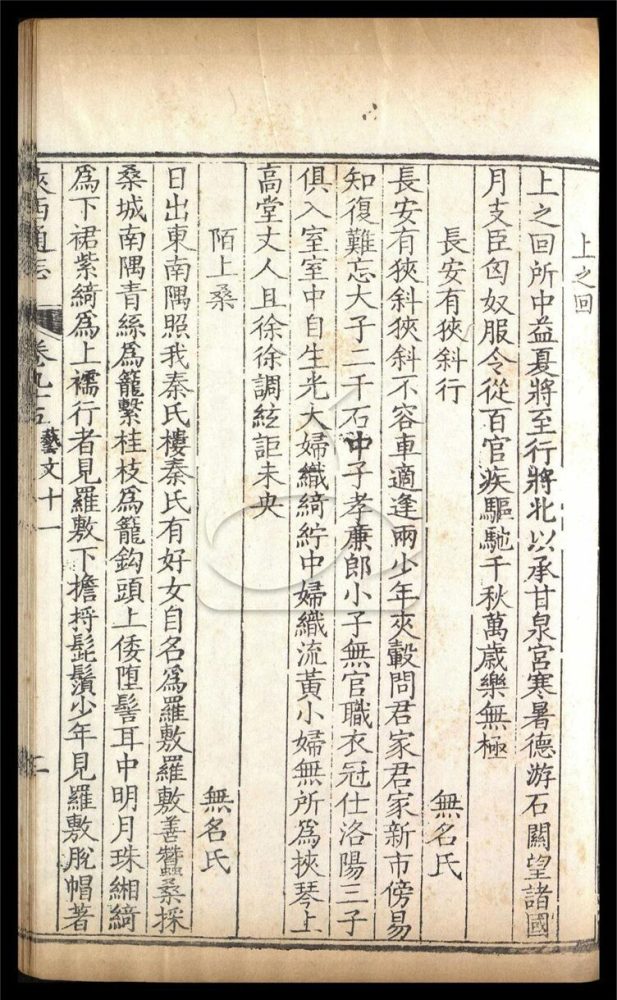 上之回
上之回所中益夏將至行將北以承甘泉宮寒暑德游石關望諸國
月支臣匈奴服令從百官疾驅馳千秋萬歲樂無極
長安有狹斜行 無名氏
長安有狹斜狹斜不容車適逢兩少年夾轂問君家君家新市傍易
知復難忘大子二千石中子孝廉郎小子無官職衣冠仕洛陽三子
俱入室室中自生光大婦織綺紵中婦織流黃小婦無所為挾琴上
高堂丈人且徐徐調絃詎未央
陌上桑 無名氏
日出東南隅照我秦氏樓秦氏有好女自名為羅敷羅敷善蠶桑採
桑城南隅青絲為籠繫桂枝為籠鈎頭上倭堕髻耳中明月珠緗綺
為下裙紫綺為上襦行者見羅敷下擔捋髭鬚少年見羅敷脫帽著
陝西通志 卷九十五 藝文十一 二